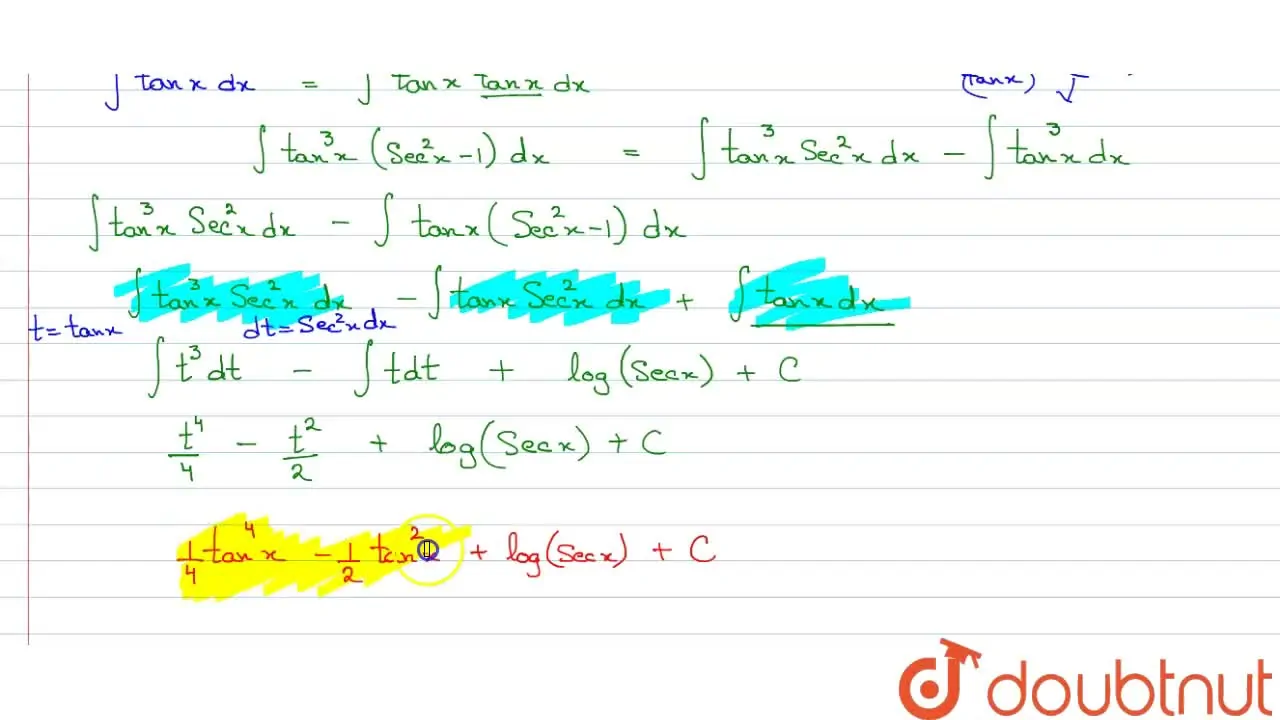 ∫ tan x dx = ∫ tan x tan x dx (tan x) √
∫ tan³x (Sec²x - 1) dx = ∫ tan³x Sec²x dx - ∫ tan³x dx
∫ tan³x Sec²x dx - ∫ tan x (Sec²x - 1) dx
∫ tan³x Sec²x dx - ∫ tan x Sec²x dx + ∫ tan x dx
t = tan x dt = Sec²x dx
∫ t³ dt - ∫ t dt + log(Sec x) + C
t⁴/4 - t²/2 + log(Sec x) + C
1/4 tan⁴x - 1/2 tan²x + log(Sec x) + C
doubtnut